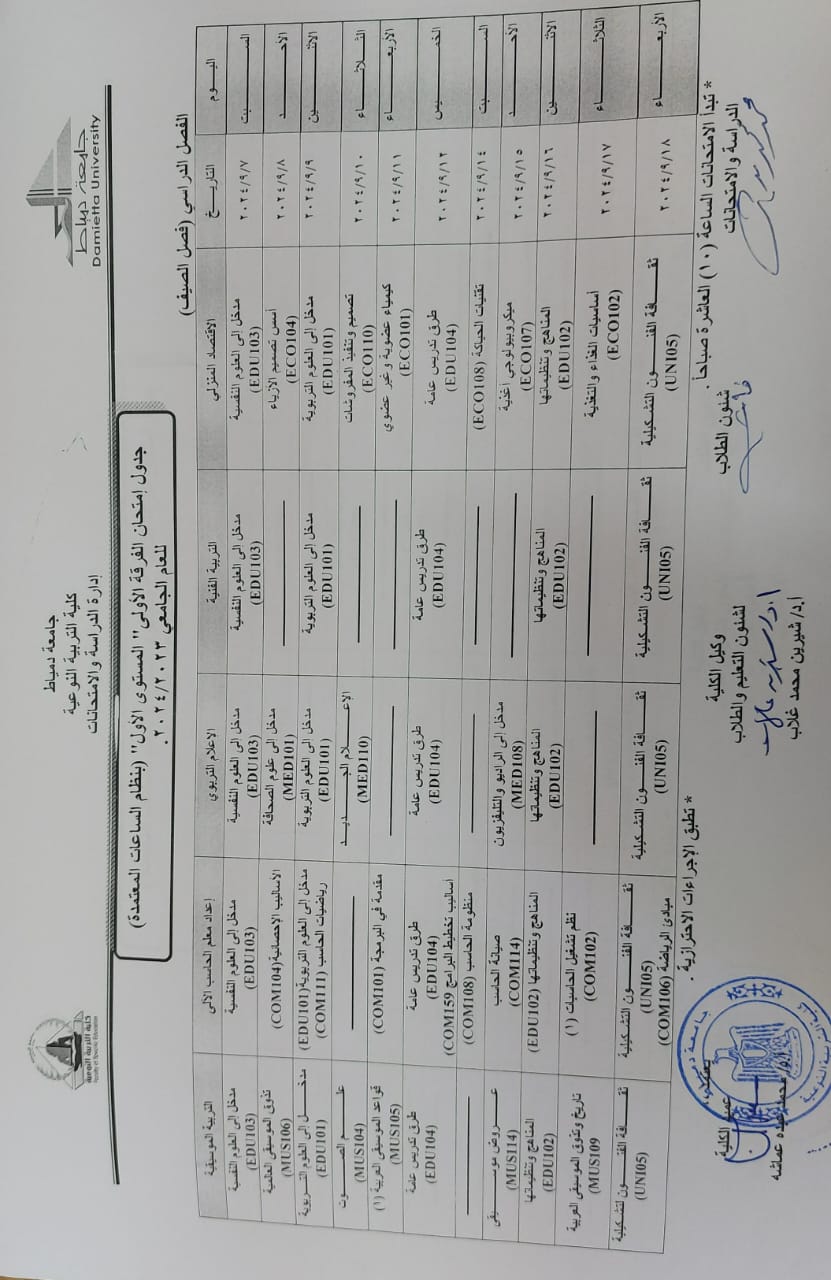 جامعة دمياط
Damietta University
جامعة دمياط
كلية التربية النوعية
إدارة الدراسة والامتحانات
كلية التربية النوعية
Faculty of Specific Education
جدول إمتحان الفرقة الأولى" المستوى الأول" (بنظام الساعات المعتمدة)
للعام الجامعي ٢٠٢٤/٢٠٢٣.
الفصل الدراسي (فصل الصيف)
اليوم التاريخ الاقتصاد المنزلي التربية الفنية الاعلام التربوي إعداد معلم الحاسب الآلي التربية الموسيقية
السبت ٢٠٢٤/٩/٧ مدخل إلى العلوم النفسية (EDU103) مدخل إلى العلوم النفسية (EDU103) مدخل إلى العلوم النفسية (EDU103) مدخل إلى العلوم النفسية (EDU103) مدخل إلى العلوم النفسية (EDU103)
الأحد ٢٠٢٤/٩/٨ أسس تصميم الأزياء (ECO104) مدخل إلى علوم الصحافة (MED101) الأساليب الإحصائية(COM104) تذوق الموسيقى العالمية (MUS106)
الاثنين ٢٠٢٤/٩/٩ مدخل إلى العلوم التربوية (EDU101) مدخل إلى العلوم التربوية (EDU101) مدخل إلى العلوم التربوية (EDU101) مدخل إلى العلوم التربوية(EDU101) رياضيات الحاسب (COM111) مدخل إلى العلوم التربوية (EDU101)
الثلاثاء ٢٠٢٤/٩/١٠ تصميم وتنفيذ المفروشات (ECO110) الإعلام الجديد (MED110) علم الصوت (MUS104)
الأربعاء ٢٠٢٤/٩/١١ كيمياء عضوية و غير عضوي (ECO101) مقدمة في البرمجة (COM101) قواعد الموسيقى العربية (١) (MUS105)
الخميس ٢٠٢٤/٩/١٢ طرق تدريس عامة (EDU104) طرق تدريس عامة (EDU104) طرق تدريس عامة (EDU104) طرق تدريس عامة (EDU104) أساليب تخطيط البرامج COM159) طرق تدريس عامة (EDU104)
السبت ٢٠٢٤/٩/١٤ تقنيات الحياكة (ECO108) منظومة الحاسب (COM108)
الأحد ٢٠٢٤/٩/١٥ ميكروبيولوجي أغذية (ECO107) مدخل إلى الراديو والتليفزيون (MED108) صيانة الحاسب (COM114) عروض موسيقى (MUS114)
الاثنين ٢٠٢٤/٩/١٦ المناهج وتنظيماتها (EDU102) المناهج وتنظيماتها (EDU102) المناهج وتنظيماتها (EDU102) المناهج وتنظيماتها (EDU102) المناهج وتنظيماتها (EDU102)
الثلاثاء ٢٠٢٤/٩/١٧ أساسيات الغذاء والتغذية (ECO102) نظم تشغيل الحاسبات (١) (COM102) تاريخ وتذوق الموسيقى العربية (MUS109
الأربعاء ٢٠٢٤/٩/١٨ ثقافة الفنون التشكيلية (UNI05) ثقافة الفنون التشكيلية (UNI05) ثقافة الفنون التشكيلية (UNI05) ثقافة الفنون التشكيلية (UNI05) مبادئ الرياضة (COM106) ثقافة الفنون لتشكيلية (UNI05)
* تبدأ الامتحانات الساعة (١٠) العاشرة صباحاً .
* تطبق الإجراءات الاحترازية .
الدراسة والامتحانات
شئون الطلاب
وكيل الكلية
لشئون التعليم والطلاب
أ.د/ شيرين محمد غلاب
عميد الكلية